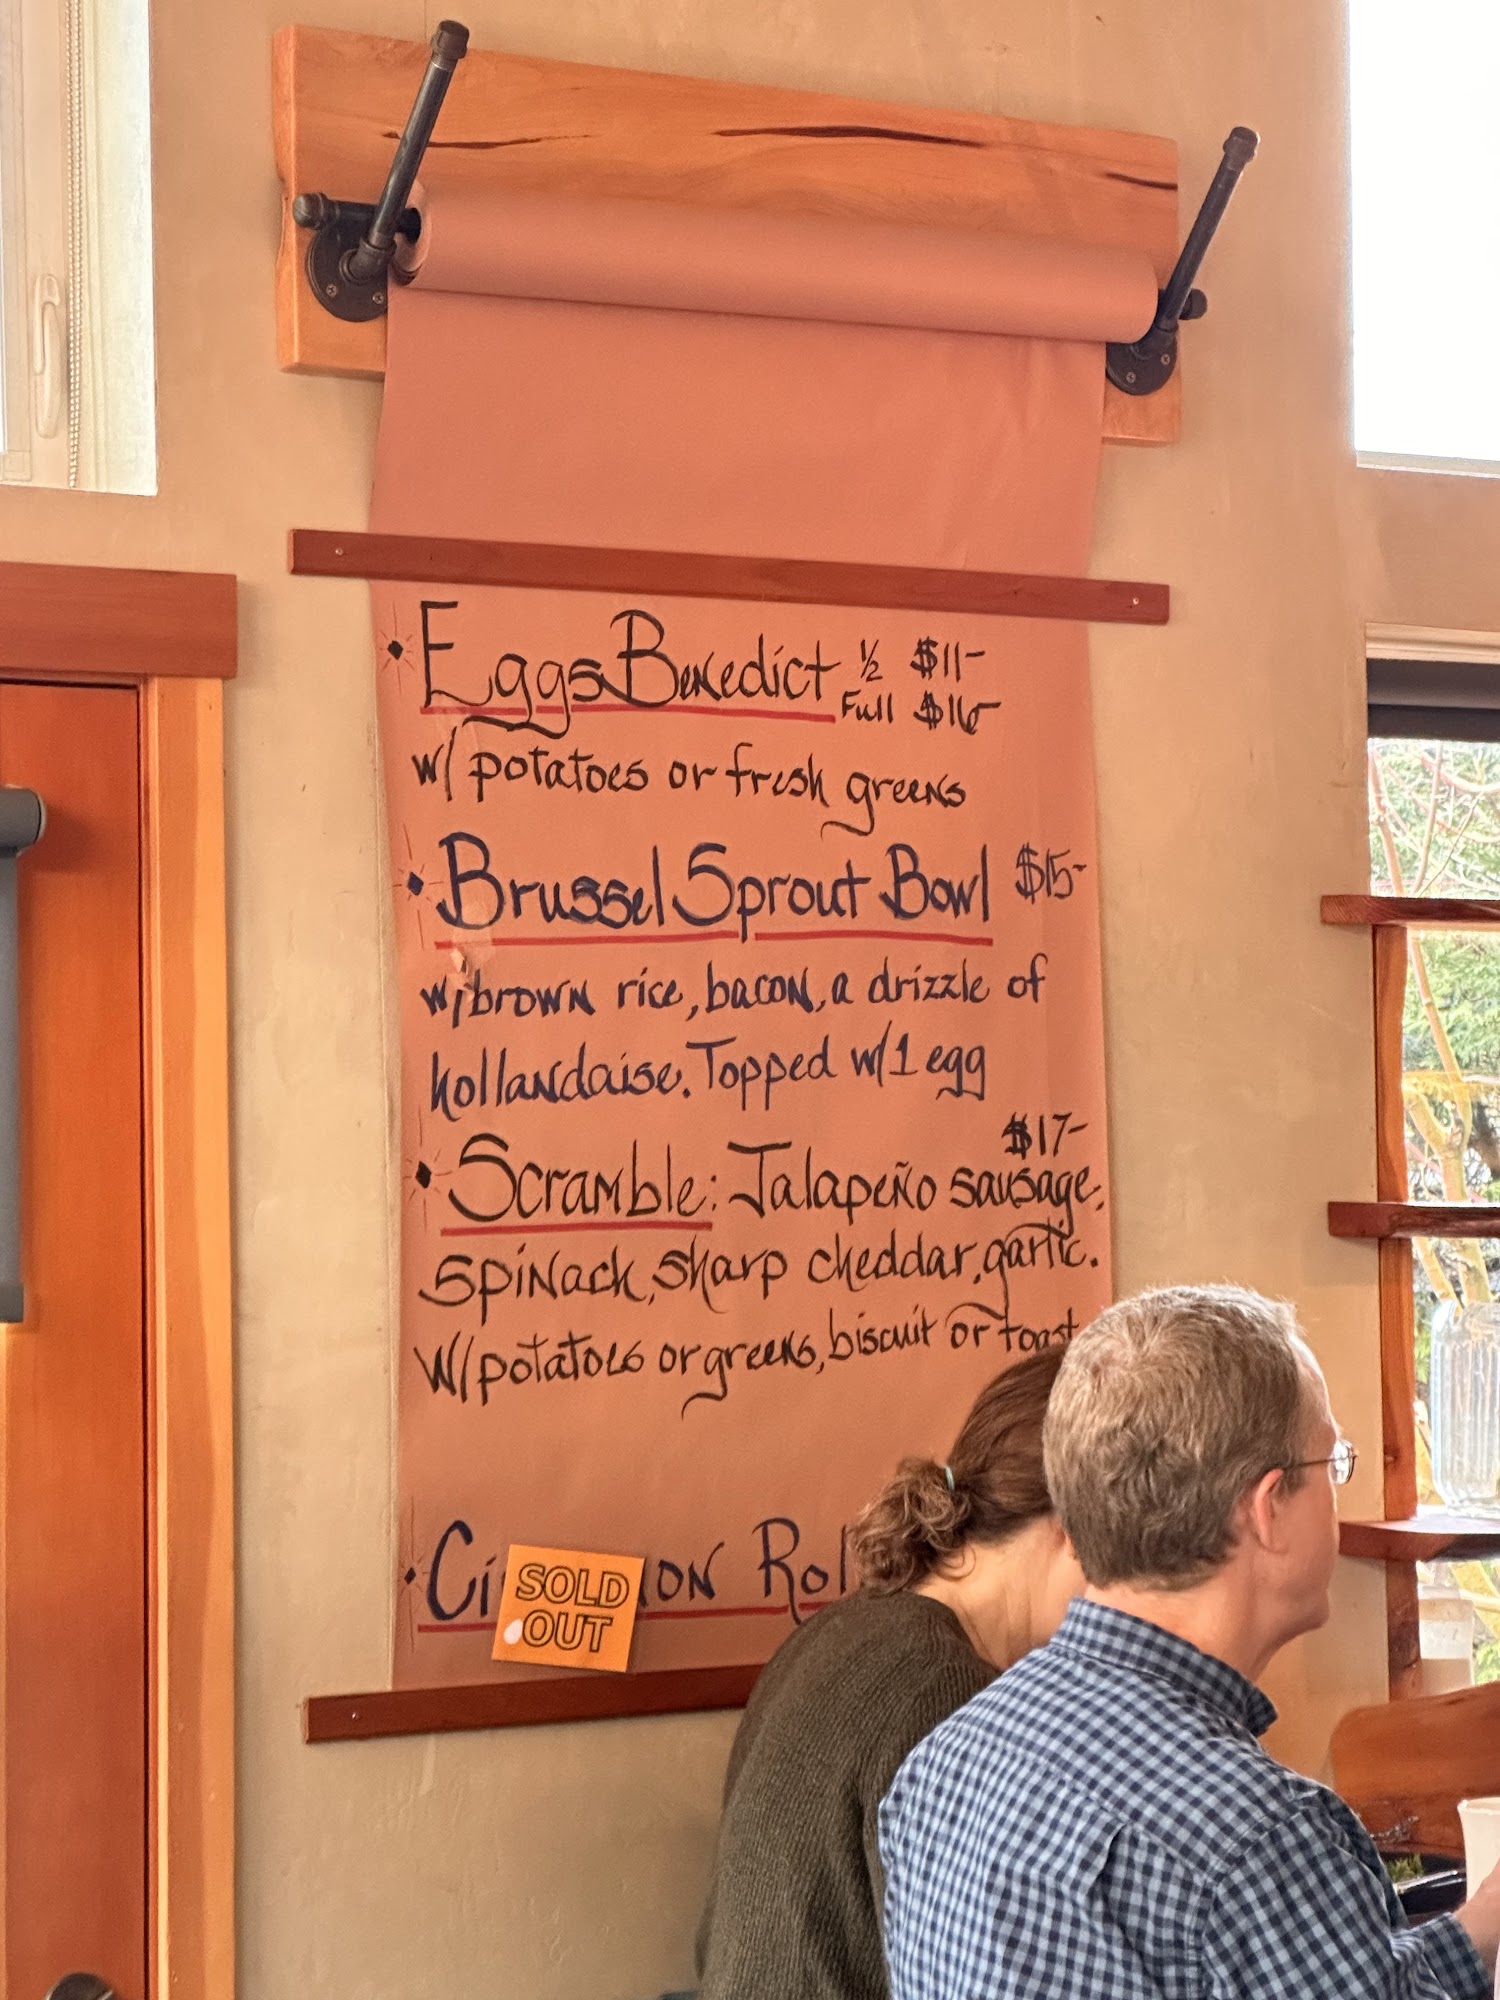 Eggs Benedict 1/2 $11-
Full $16-
w/ potatoes or fresh greens
Brussel Sprout Bowl $15-
w/ brown rice, bacon, a drizzle of
hollandaise. Topped w/ 1 egg
$17-
Scramble: Jalapeño sausage,
spinach, sharp cheddar, garlic.
W/ potatoes or greens, biscuit or toast
Ci on Rol
SOLD
OUT